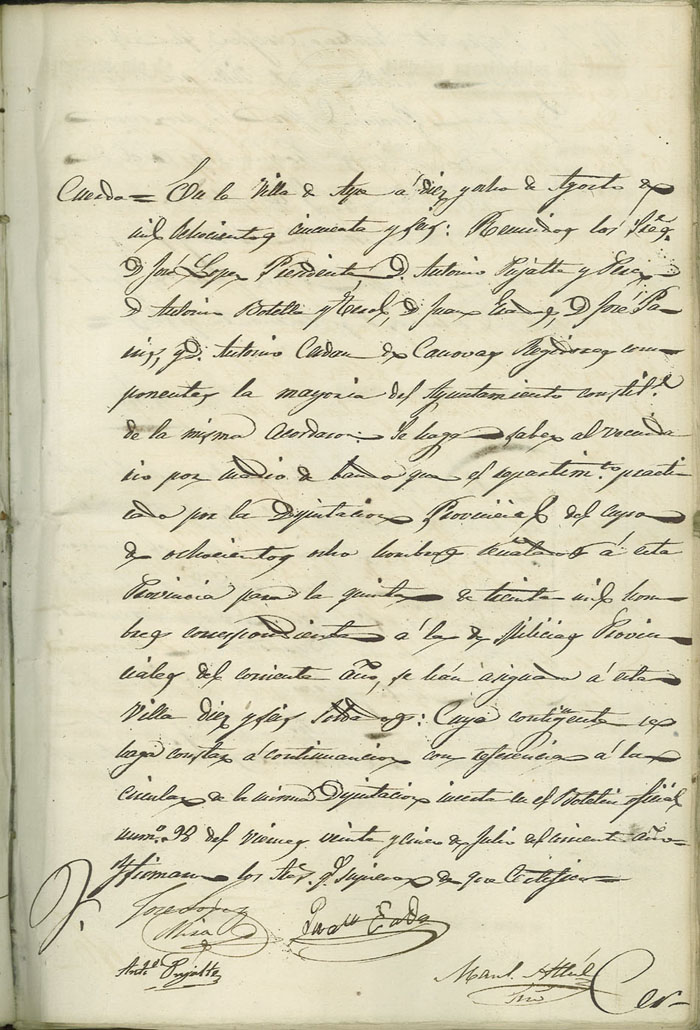 Cuerdo = En la Villa de Aspe á diez y ocho de Agosto de
mil ochocientos cincuenta y seis: Reunidos los Sres.
D. José Lopez Presidente D. Antonio Pujalte y
D. Antonio Botella y D. Juan D. José Pa-
y D. Antonio Cerdan de Canovas Regidores com-
ponentes la mayoria del Ayuntamiento constitl.
de la misma acordaron: Se haga saber al vecinda
rio por medio de bando que el repartimto. practi
cado por la Diputacion Provincial del cupo
de ochocientos ocho hombres á esta
Provincia para la quinta de treinta mil hom
bres correspondiente á la de Milicias Provin
ciales del corriente año, se han asignado á esta
Villa diez y seis Soldados: Cuyo contingente se
haga constar á continuacion con referencia á la
circular de la misma Diputacion inserta en el Boletin oficial
numo. 98 del Viernes veinte y cinco de Julio del corriente año
Y firman los Sres. q. supieron de que Certifico =
Jose Lopez
Mira
Juan
Anto. Pujalte
Manl.
Srio
Cer-